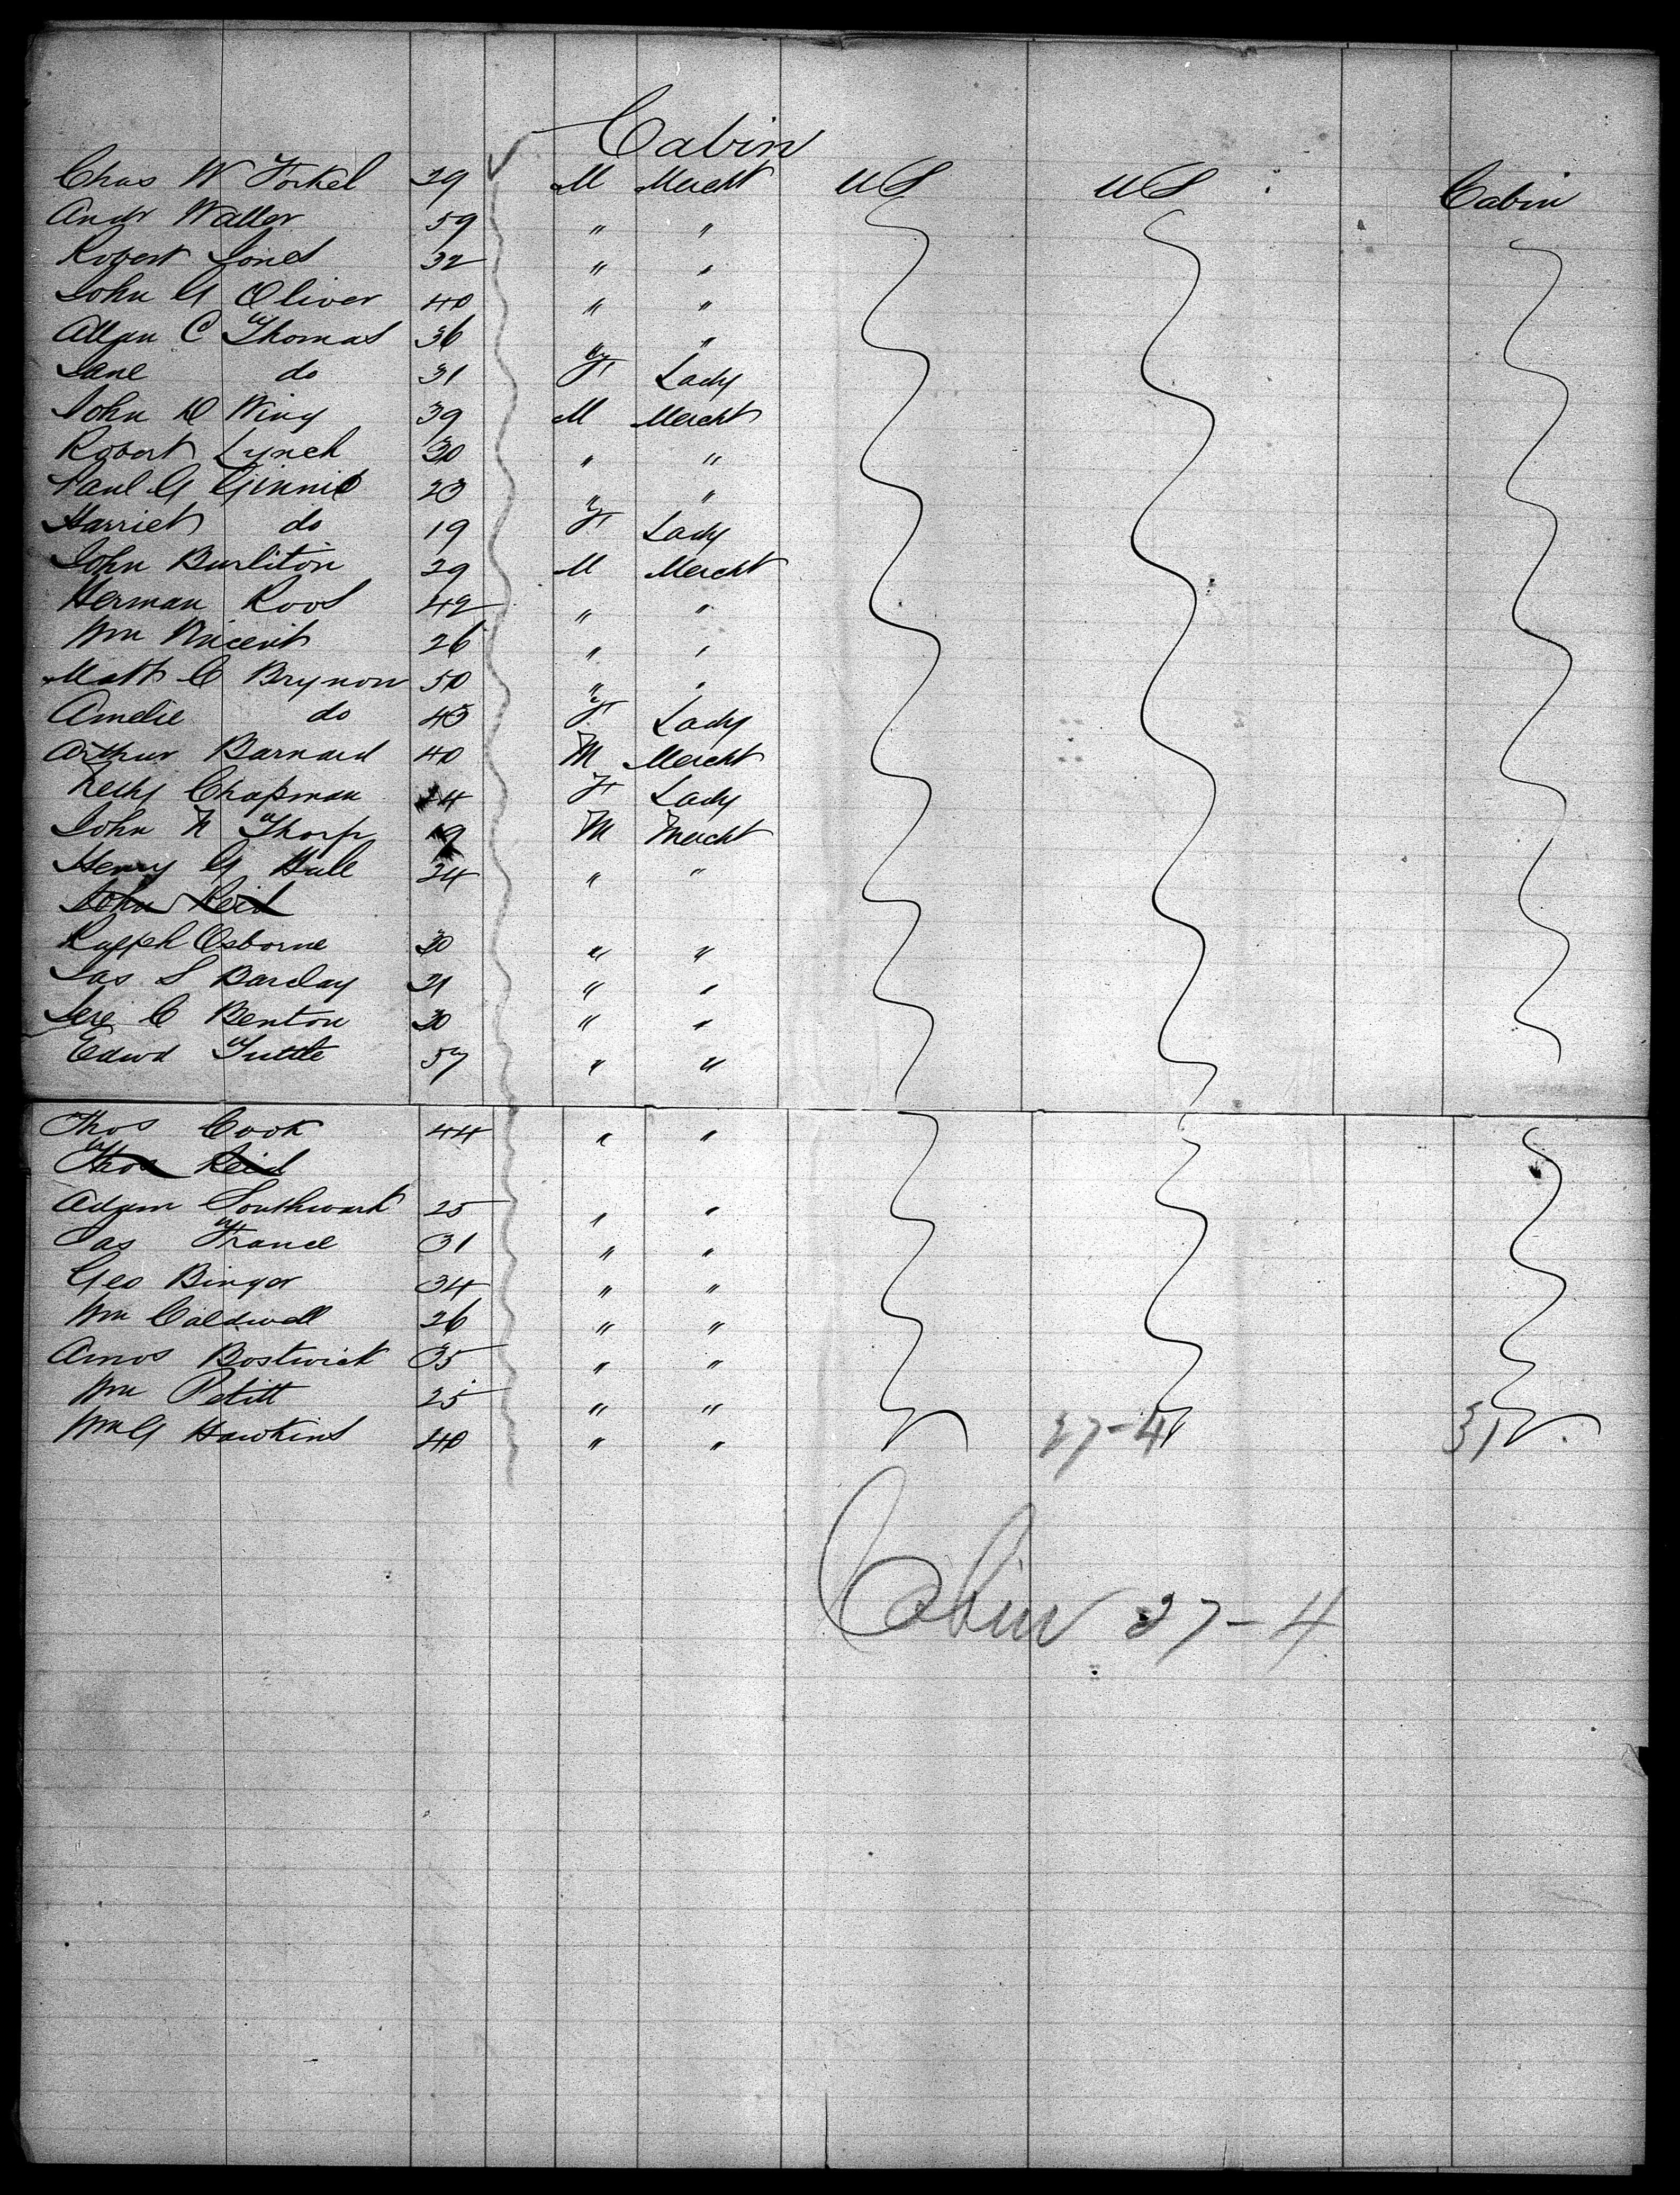 Cabin
Chas W Forkel 29 M Mercht US US Cabin
Andr Waller 59 " "
Robert Jones 32 " "
John G Oliver 40 " "
Allan C Thomas 36 " "
Jane do 31 F Lady
John D Wing 39 M Mercht
Robert Lynch 30 " "
Paul G Ginnis 23 " "
Harriet do 19 F Lady
John Burliton 29 M Mercht
Herman Roos 42 " "
Wm Vincent 26 " "
Matt C Brynon 50 " "
Amelie do 45 F Lady
Arthur Barnard 40 M Mercht
Chapman F Lady
John N Thorp 19 M Mercht
Henry G Hull 24 " "
John Reid
Ralph Osborne 30 " "
Jas S Barclay 21 " "
Jere C Benton 30 " "
Edwd Tuttle 57 " "
Thos Cook 44 " "
Thos Reid
Adam Southwark 25 " "
Jas France 31 " "
Geo Binger 34 " "
Wm Caldwell 26 " "
Amos Bostwick 35 " "
Wm Petitt 25 " "
Wm G Hawkins 40 " " 27-4 31
Cabin 27-4